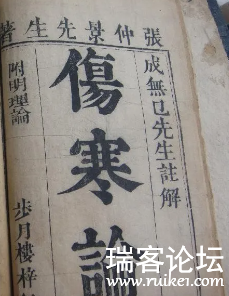 張仲景先生著
張成無己先生註解
傷寒論
附明理論
步月樓梓
瑞客论坛
www.ruikei.com